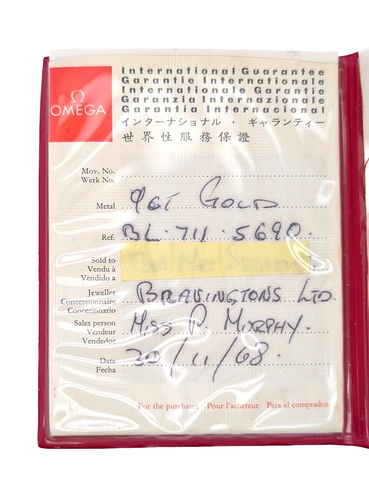 International Guarantee
Garantie Internationale
Internationale Garantie
Garanzia Internazionale
Garantia Internacional
インターナショナル・ギャランティー
世界性服務保證
Ω
OMEGA
Mov. No.
Werk No.
Metal 9CT GOLD
Ref. BL·711·5690.
Sold to
Vendu à
Vendido a
Jeweller BRAVINGTONS LTD.
Concessionnaire
Concesionario
Sales person MISS P. MURPHY.
Vendeur
Vendedor
Date 30/11/68
Fecha
For the purchaser Pour l'acheteur Para el comprador